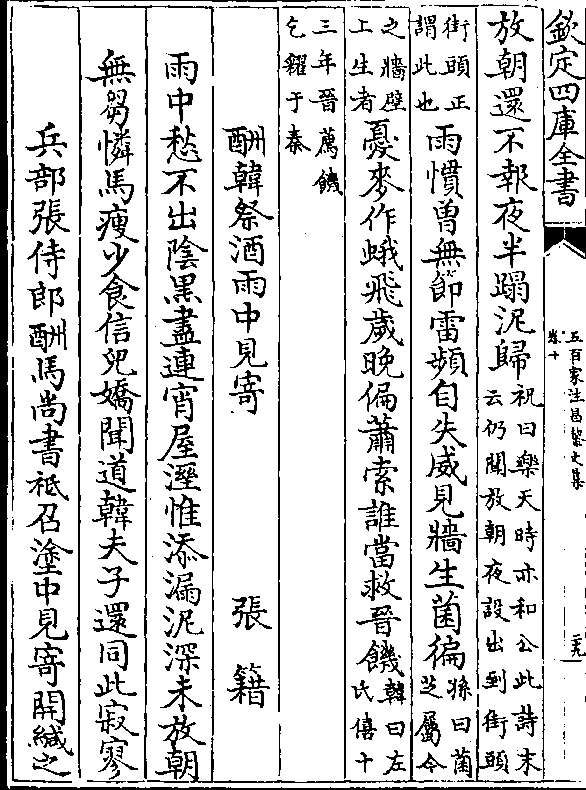 欽定四庫全書
五百家注昌黎文集
卷十
放朝還不報夜半蹋泥歸祝曰樂天時亦和公此詩末
云仍聞放朝夜設出到街頭
街頭正
謂此也
雨慣曽無節雷頻自失威見牆生菌徧孫曰菌
芝屬今
之牆壁
上生者
憂麥作蛾飛歲晚偏蕭索誰當救晉饑韓曰左
氏僖十
三年晉薦饑
乞糴于秦
酬韓祭酒雨中見寄 張籍
雨中愁不出陰黒盡連宵屋溼惟添漏泥深未放朝
無芻憐馬瘦少食信兒嬌聞道韓夫子還同此寂寥
兵部張侍郎酬馬尚書祗召塗中見寄開緘之